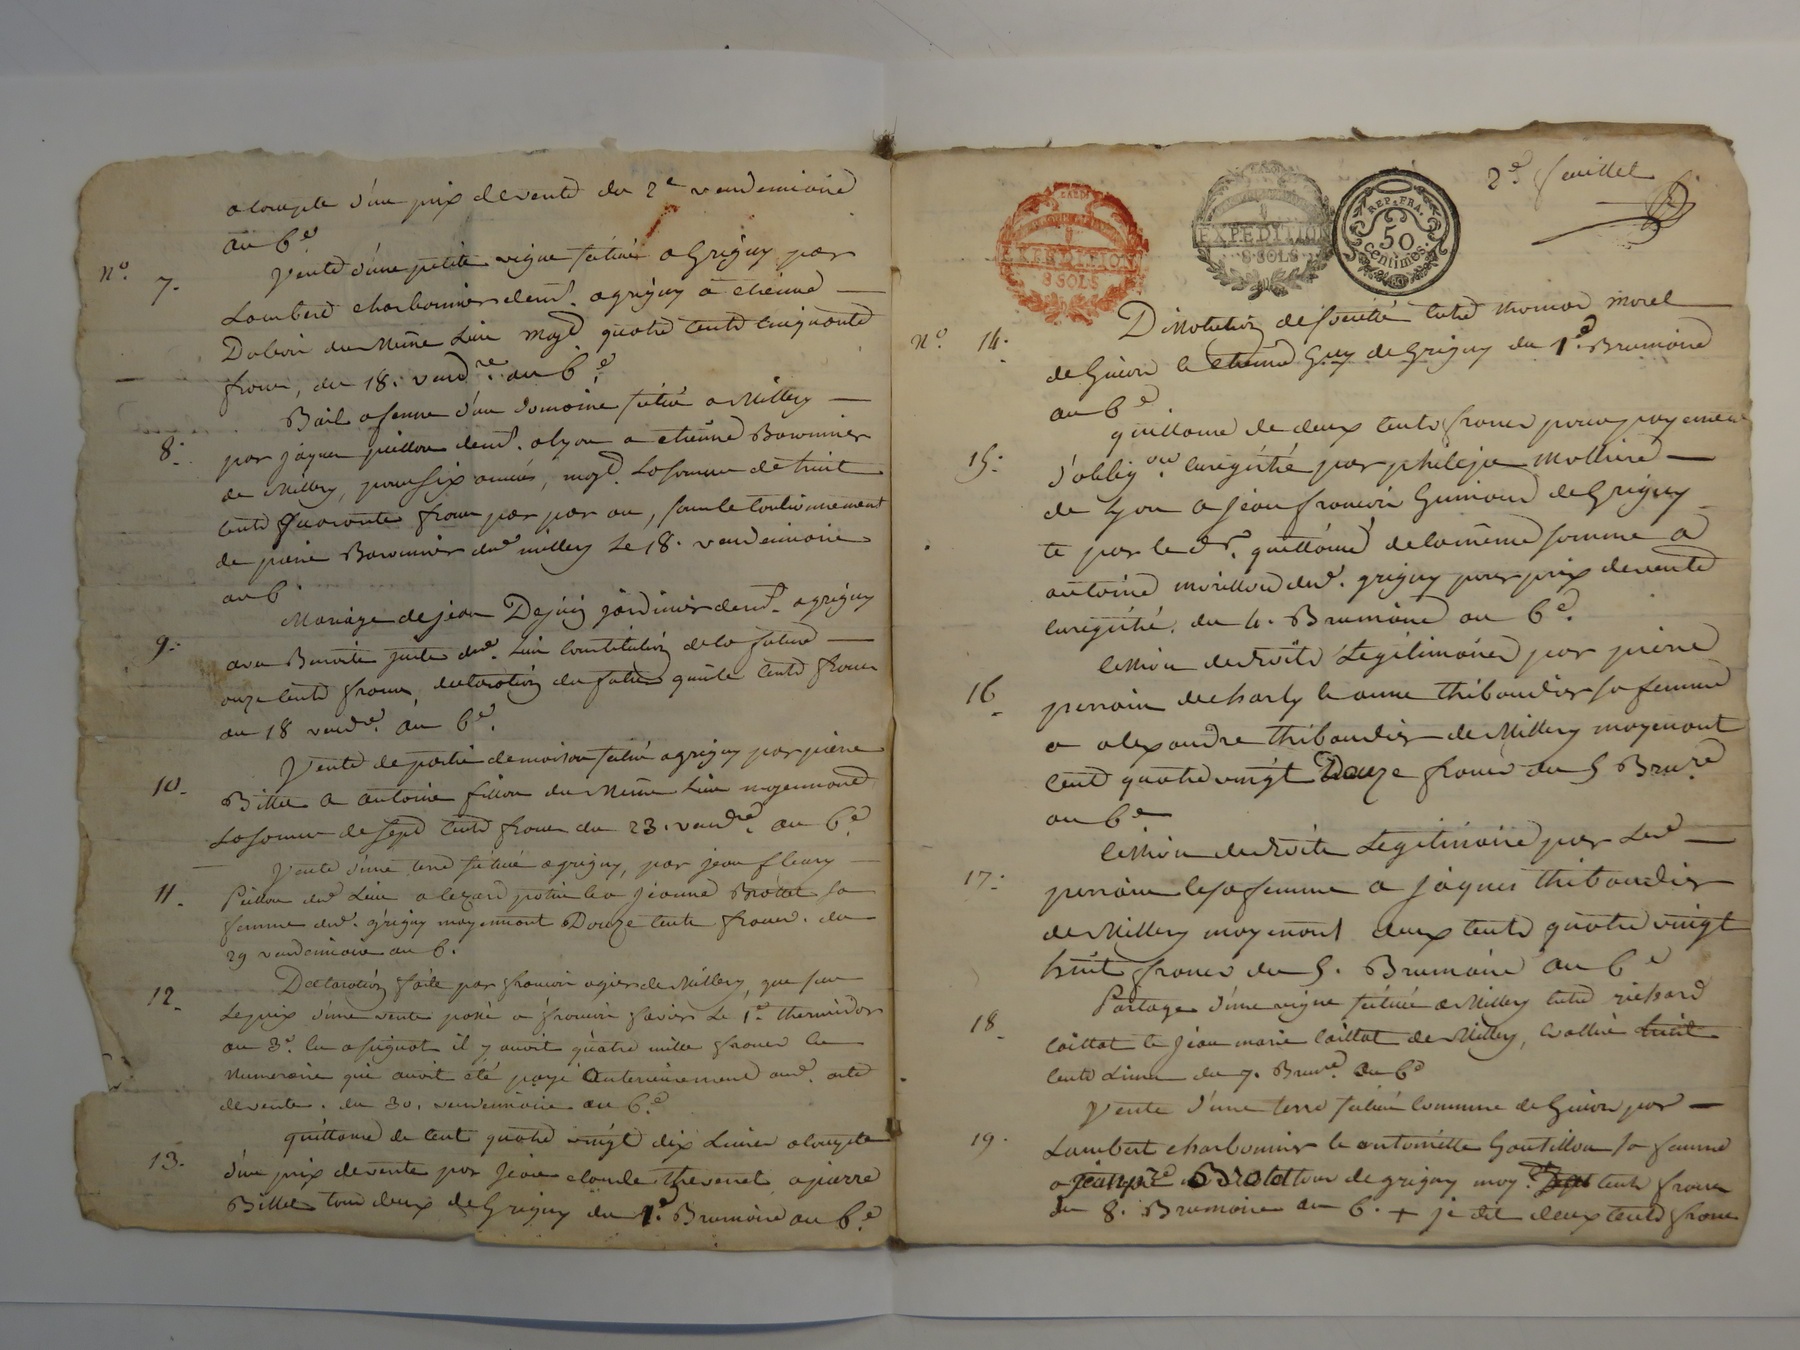 acompte d'un prix de vente du 2e vendemiaire
an 6e
Vente d'une petite vigne située a Grigny par
n°. 7. Lambert charbonnier demt. a grigny a etienne
Dabon du Même Lieu moyt quatre cents cinquante
francs, du 18. vendre. an 6e.
Bail a ferme d'un domaine situé a Millery
8. par jaques demt. a lyon a etienne Baronnier
de Millery, pour six années, moyt. La somme de huit
cents quarante francs par par an, sous le cautionnement
de pierre Baronnier dud millery Le 18. vendemiaire
an 6
Mariage de jean Dejoin jardinier demt. a grigny
9. avec Benoite dud. Lieu constitution de la future
onze cents francs, declaration du futur quinze cents francs
du 18 vendre. an 6e.
Vente de partie de maison située a grigny par pierre
10. Billet a antoine fillon du Même Lieu moyennant
La somme de sept cents francs du 23. vendre. an 6e
Vente d'une terre située a grigny, par jean fleury
11. dud Lieu a potin & a jeanne Brottet sa
femme dud. grigny moyennant Douze cents francs. du
29 vendemiaire an 6.
Declaration faite par francois ogier de Millery, que sur
12. Le prix d'une vente passé a francois favier Le 1er thermidor
an 3e. en assignat il y avoit quatre mille francs en
Numeraire qui avoit été payé anterieurement aud. acte
de vente. du 30. vendemiaire an 6e
quittance de cent quatre vingt dix Livres acompte
13. d'un prix de vente par jean claude thevenet a pierre
Billet tous deux de Grigny du 1er. Brumaire an 6e
CADN
EXPEDITION
8 SOLS
EXPEDITION
8 SOLS
REP. FRA.
50
Centimes.
2e. feuillet
Dissolution de societé entre thomas morel
n°. 14. de Givors & etienne Guy de Grigny du 1er. Brumaire
an 6e
quittance de deux cents francs pour payement
15. d'obligon enregistré par philipe mollière
de Lyon a jean francois Guinand de Grigny
& par le dt. quittance de la même somme a
antoine morillon dud. grigny pour prix de vente
enregistré. du 4. Brumaire an 6e.
cession de droits Legitimaires par pierre
16 perrain de charly & anne thibaudier sa femme
a alexandre thibaudier de Millery moyenant
cent quatre vingt Douze francs du 5 Brure
an 6e
cession de droits Legitimaire par Led
17. perrain & sa femme a jaques thibaudier
de Millery moyenant deux cents quatre vingt
huit francs du 5. Brumaire an 6e
Partage d'une vigne située a Millery entre richard
18 caillat & jean marie caillat de Millery, evalué huit
cents Livres du 7. Brure. an 6e
Vente d'une terre située commune de Givors par
19. Lambert charbonnier & antoinette Goutillon sa femme
a de grigny moyt. sept cents francs
du 8. Brumaire an 6. + je dit deux cents francs